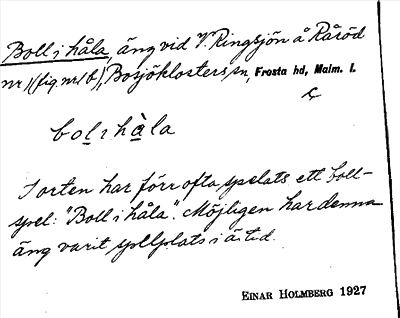 Boll i håla, äng vid V. Ringsjön å Råröd
nr 1 (fig. nr 1 b), Bosjöklosters sn, Frosta hd, Malm. l.
bolı hàla
I orten har förr ofta spelats ett boll-
spel: "Boll i håla". Möjligen har denna
äng varit spelplats i ä. tid.
EINAR HOLMBERG 1927